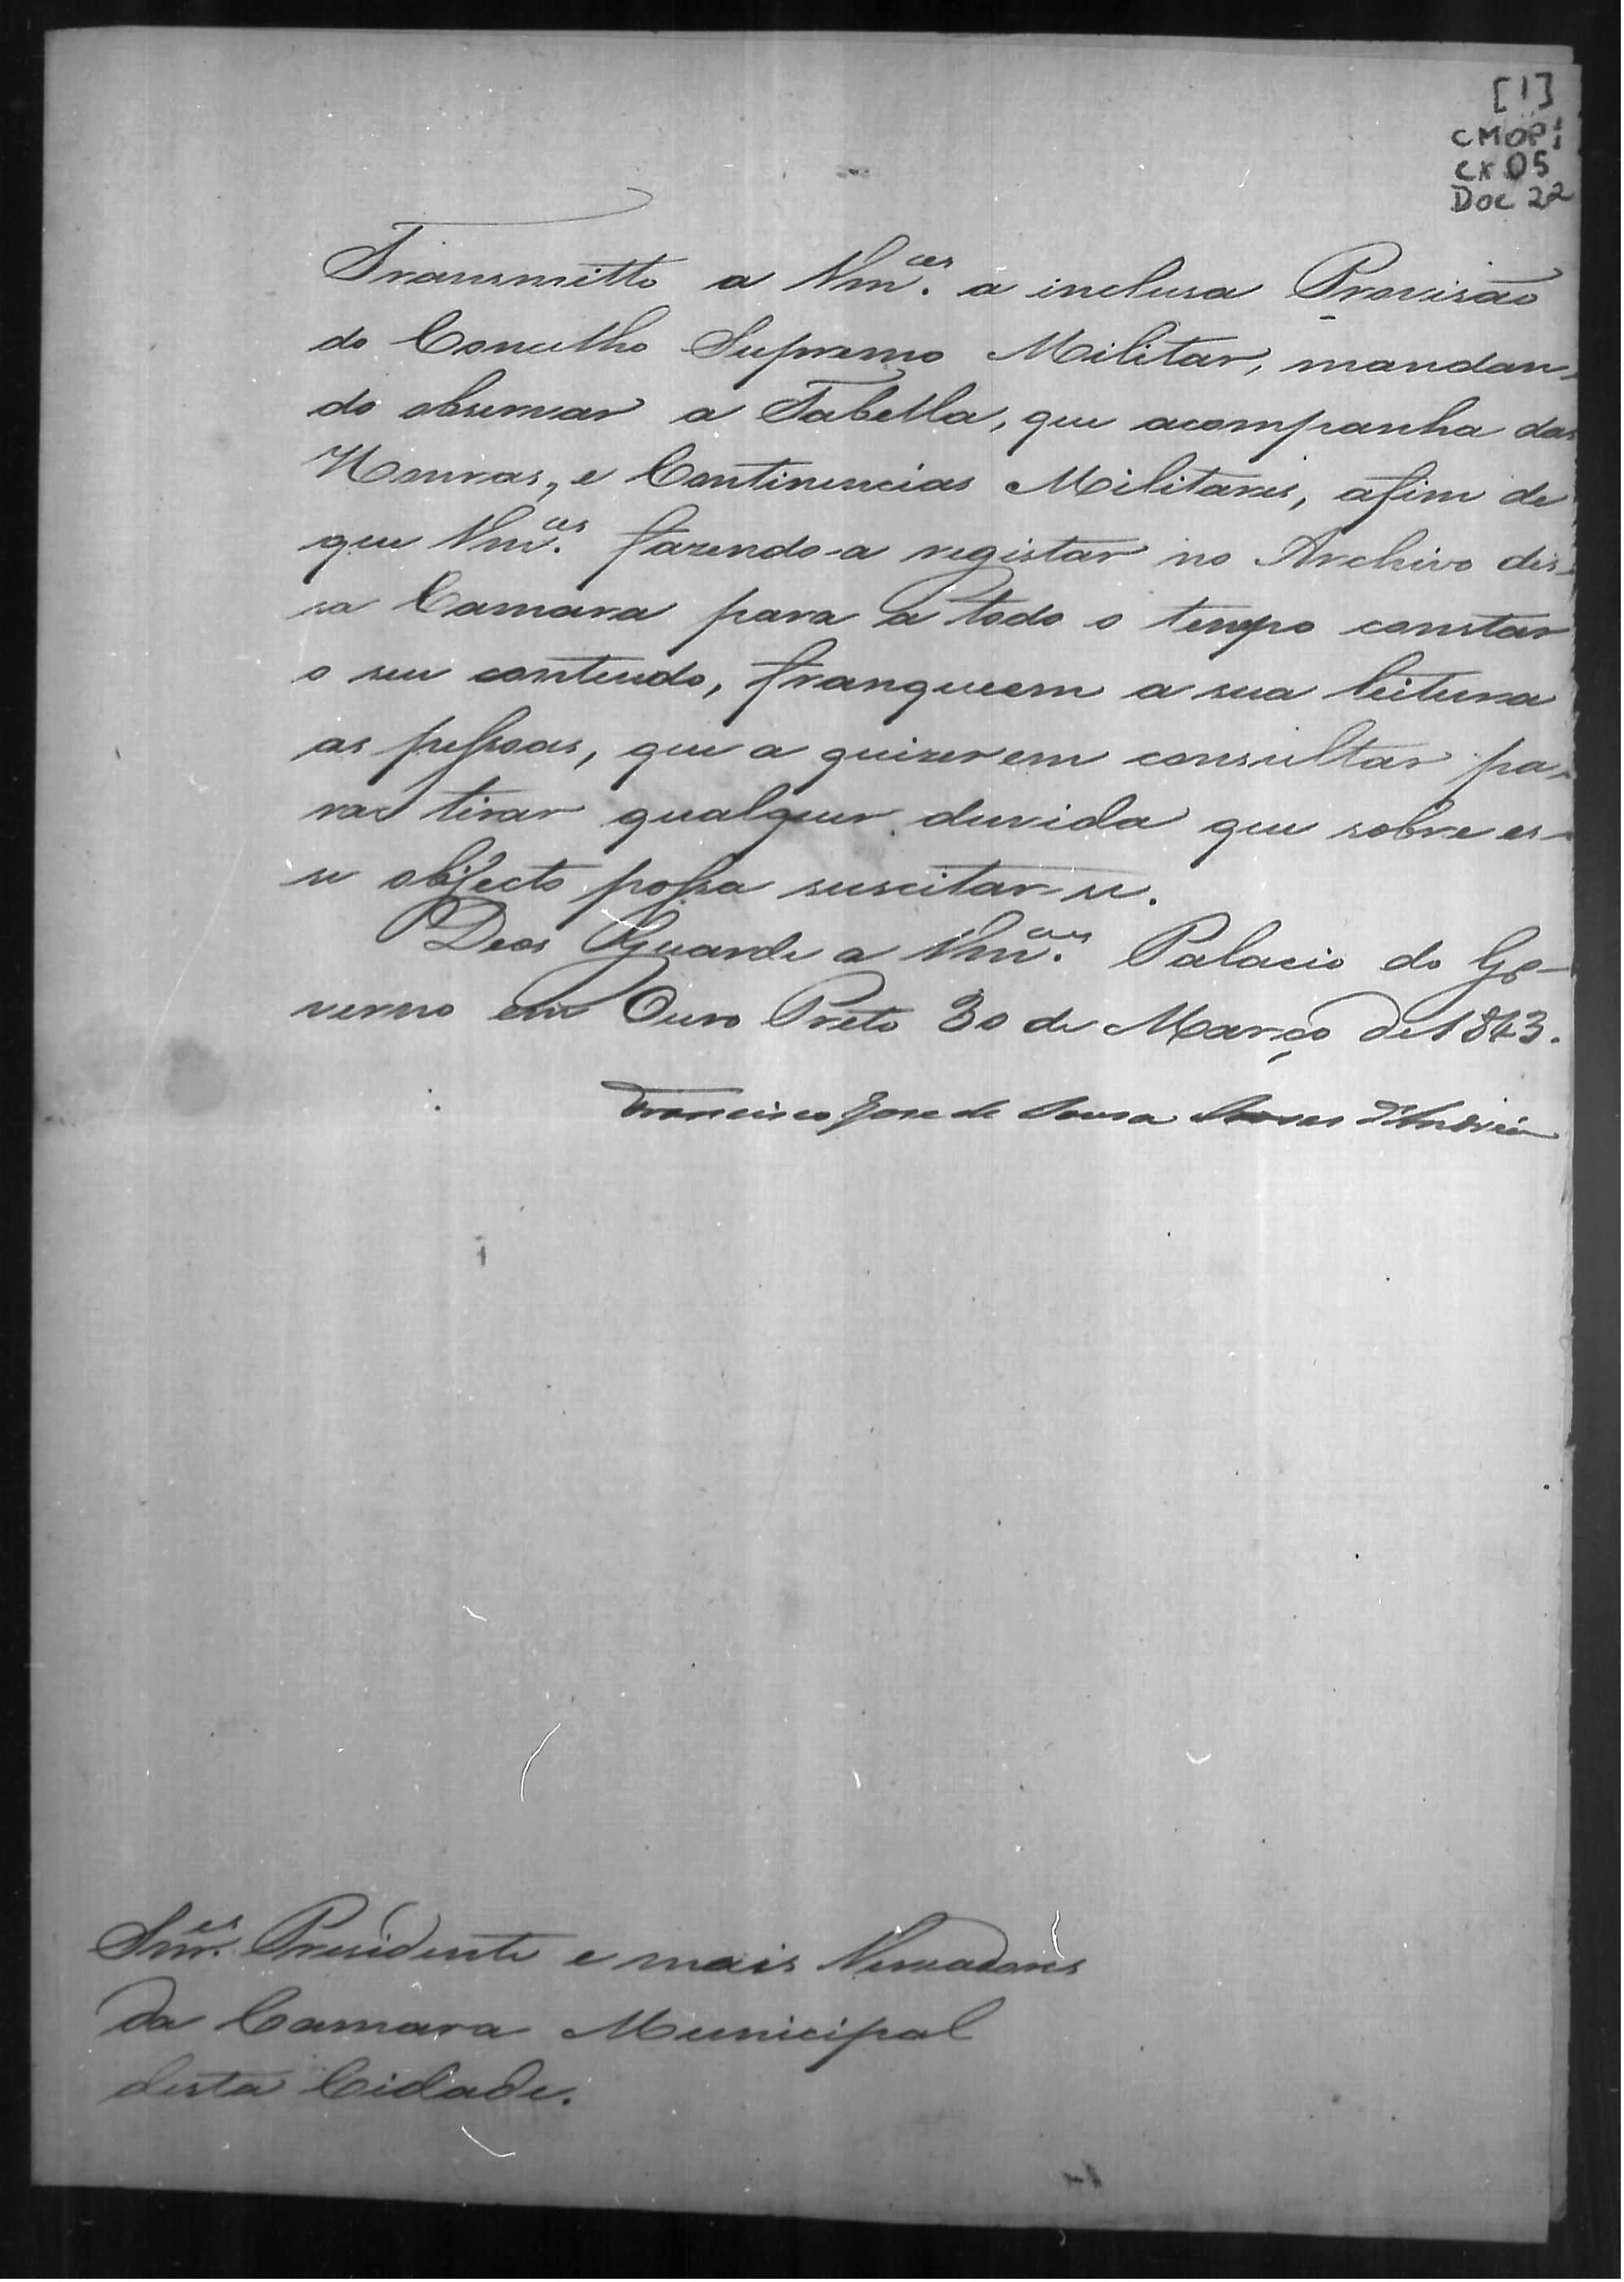 [1]
CMOP!
cx 05
Doc 22
Transmitto a Vm.ces a inclusa Provisão
do Concelho Supremo Militar, mandan-
do observar a Tabella, que acompanha das
Honras, e Continencias Militares, afim de
que Vm.ces fazendo-a registar no Archivo des-
sa Camara para a todo o tempo constar
o seu conteudo, franqueem a sua leitura
as pessoas, que a quizerem consultar pa-
ra tirar qualquer duvida que sobre es-
se objecto possa suscitar-se.
Deos Guarde a Vm.ces Palacio do Go-
verno em Ouro Preto 30 de Março de 1843.
Francisco Jose de Sousa Soares d'Andréa
Snr.es Presidente e mais Vereadores
da Camara Municipal
desta Cidade.